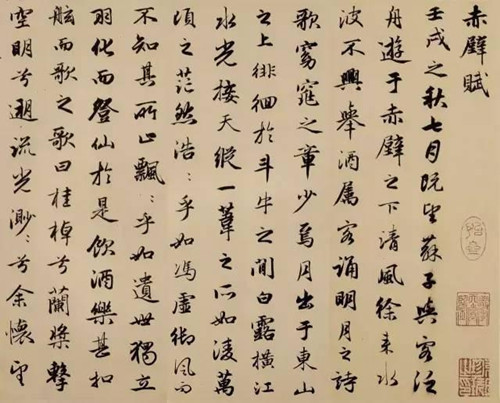 赤壁賦
壬戌之秋七月既望蘇子與客泛
舟遊于赤壁之下清風徐来水
波不興舉酒属客誦明月之詩
歌窈窕之章少焉月出于東山
之上徘徊於斗牛之間白露横江
水光接天縱一葦之所如凌萬
頃之茫然浩〻乎如馮虚御風而
不知其所止飄〻乎如遺世獨立
羽化而登仙於是飲酒樂甚扣
舷而歌之歌曰桂棹兮蘭槳擊
空明兮遡流光渺〻兮余懷望